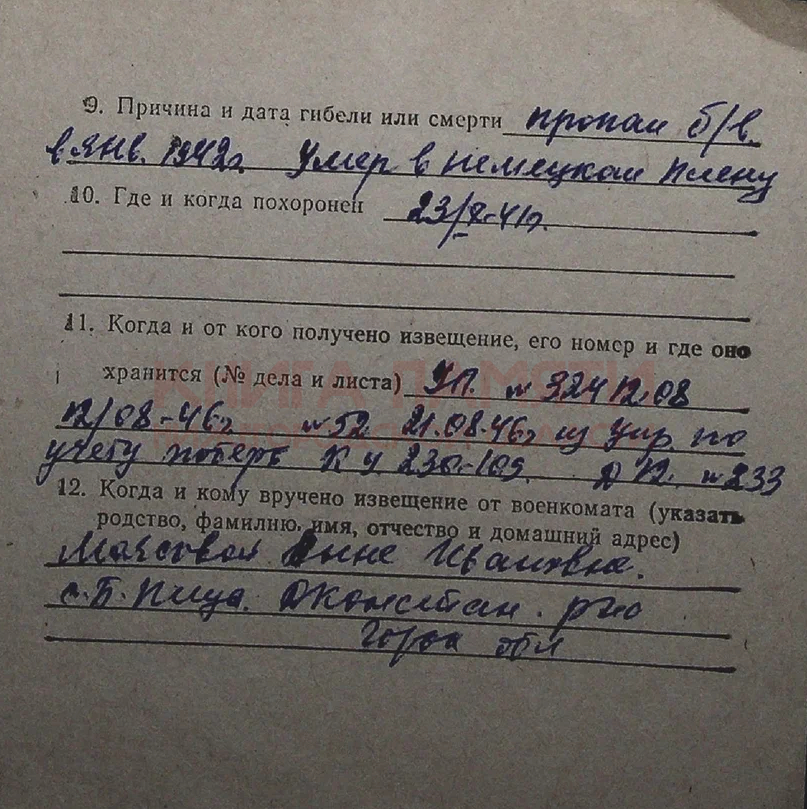 9. Причина и дата гибели или смерти пропал б/в.
в янв. 1942г. Умер в немецком плену
10. Где и когда похоронен 23/X-41г.
11. Когда и от кого получено извещение, его номер и где оно
хранится (№ дела и листа) УП. № 324 12.08
12/08-46г №52 21.08.46г из упр. по
учету потерь К и 230-109. Д 12. №233
12. Когда и кому вручено извещение от военкомата (указать
родство, фамилию, имя, отчество и домашний адрес)
Анне Ивановне.
с. Б. Пица. Дконстан. р-на
Горьк обл
КНИГА ПАМЯТИ